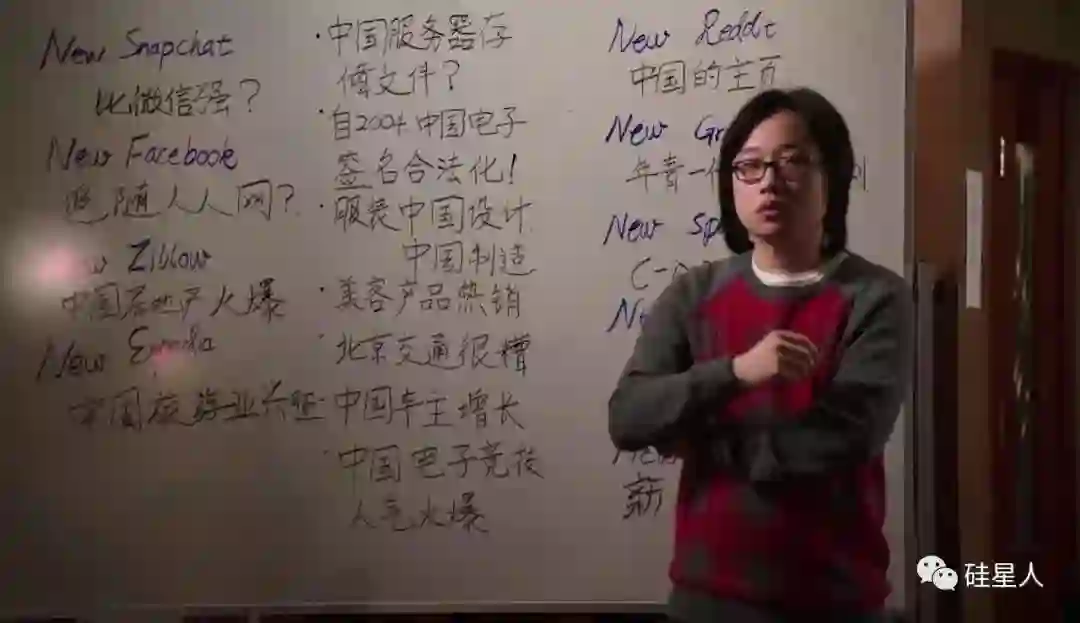 New Snapchat
比微信强？
New Facebook
追随人人网？
Zillow
中国房地产火爆
New Expedia
中国旅游业兴旺
·中国服务器存
储文件？
·自2004中国电子
签名合法化！
·服装中国设计
中国制造
·美容产品热销
·北京交通很糟
·中国车主增长
·中国电子竞技
人气火爆
New Reddit
中国的主页
New
年青一
New
New
新
硅星人